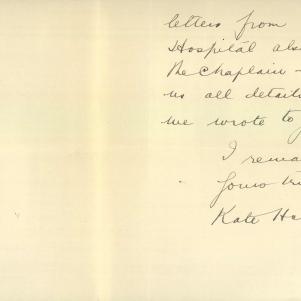 letters from
Hospital als
the Chaplain -
us all detail
we wrote to
I rema
Yours
Kate Ha